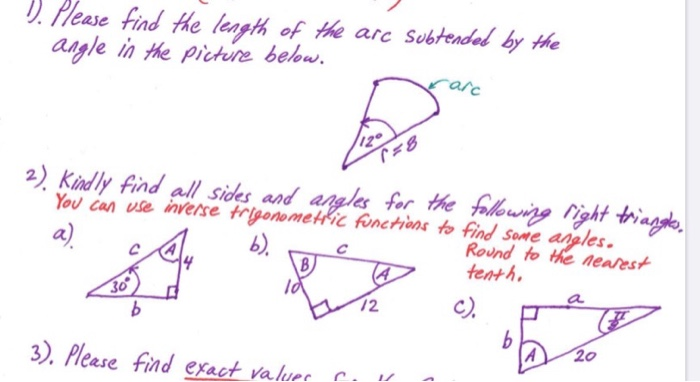 1). Please find the length of the arc subtended by the
angle in the picture below.
arc
12°
r=8
2). Kindly find all sides and angles for the following right triangles.
You can use inverse trigonometric functions to find some angles.
Round to the nearest
tenth.
a).
c
A
4
30°
b
b).
c
B
A
10
12
c).
a
b
A
20
3). Please find exact values